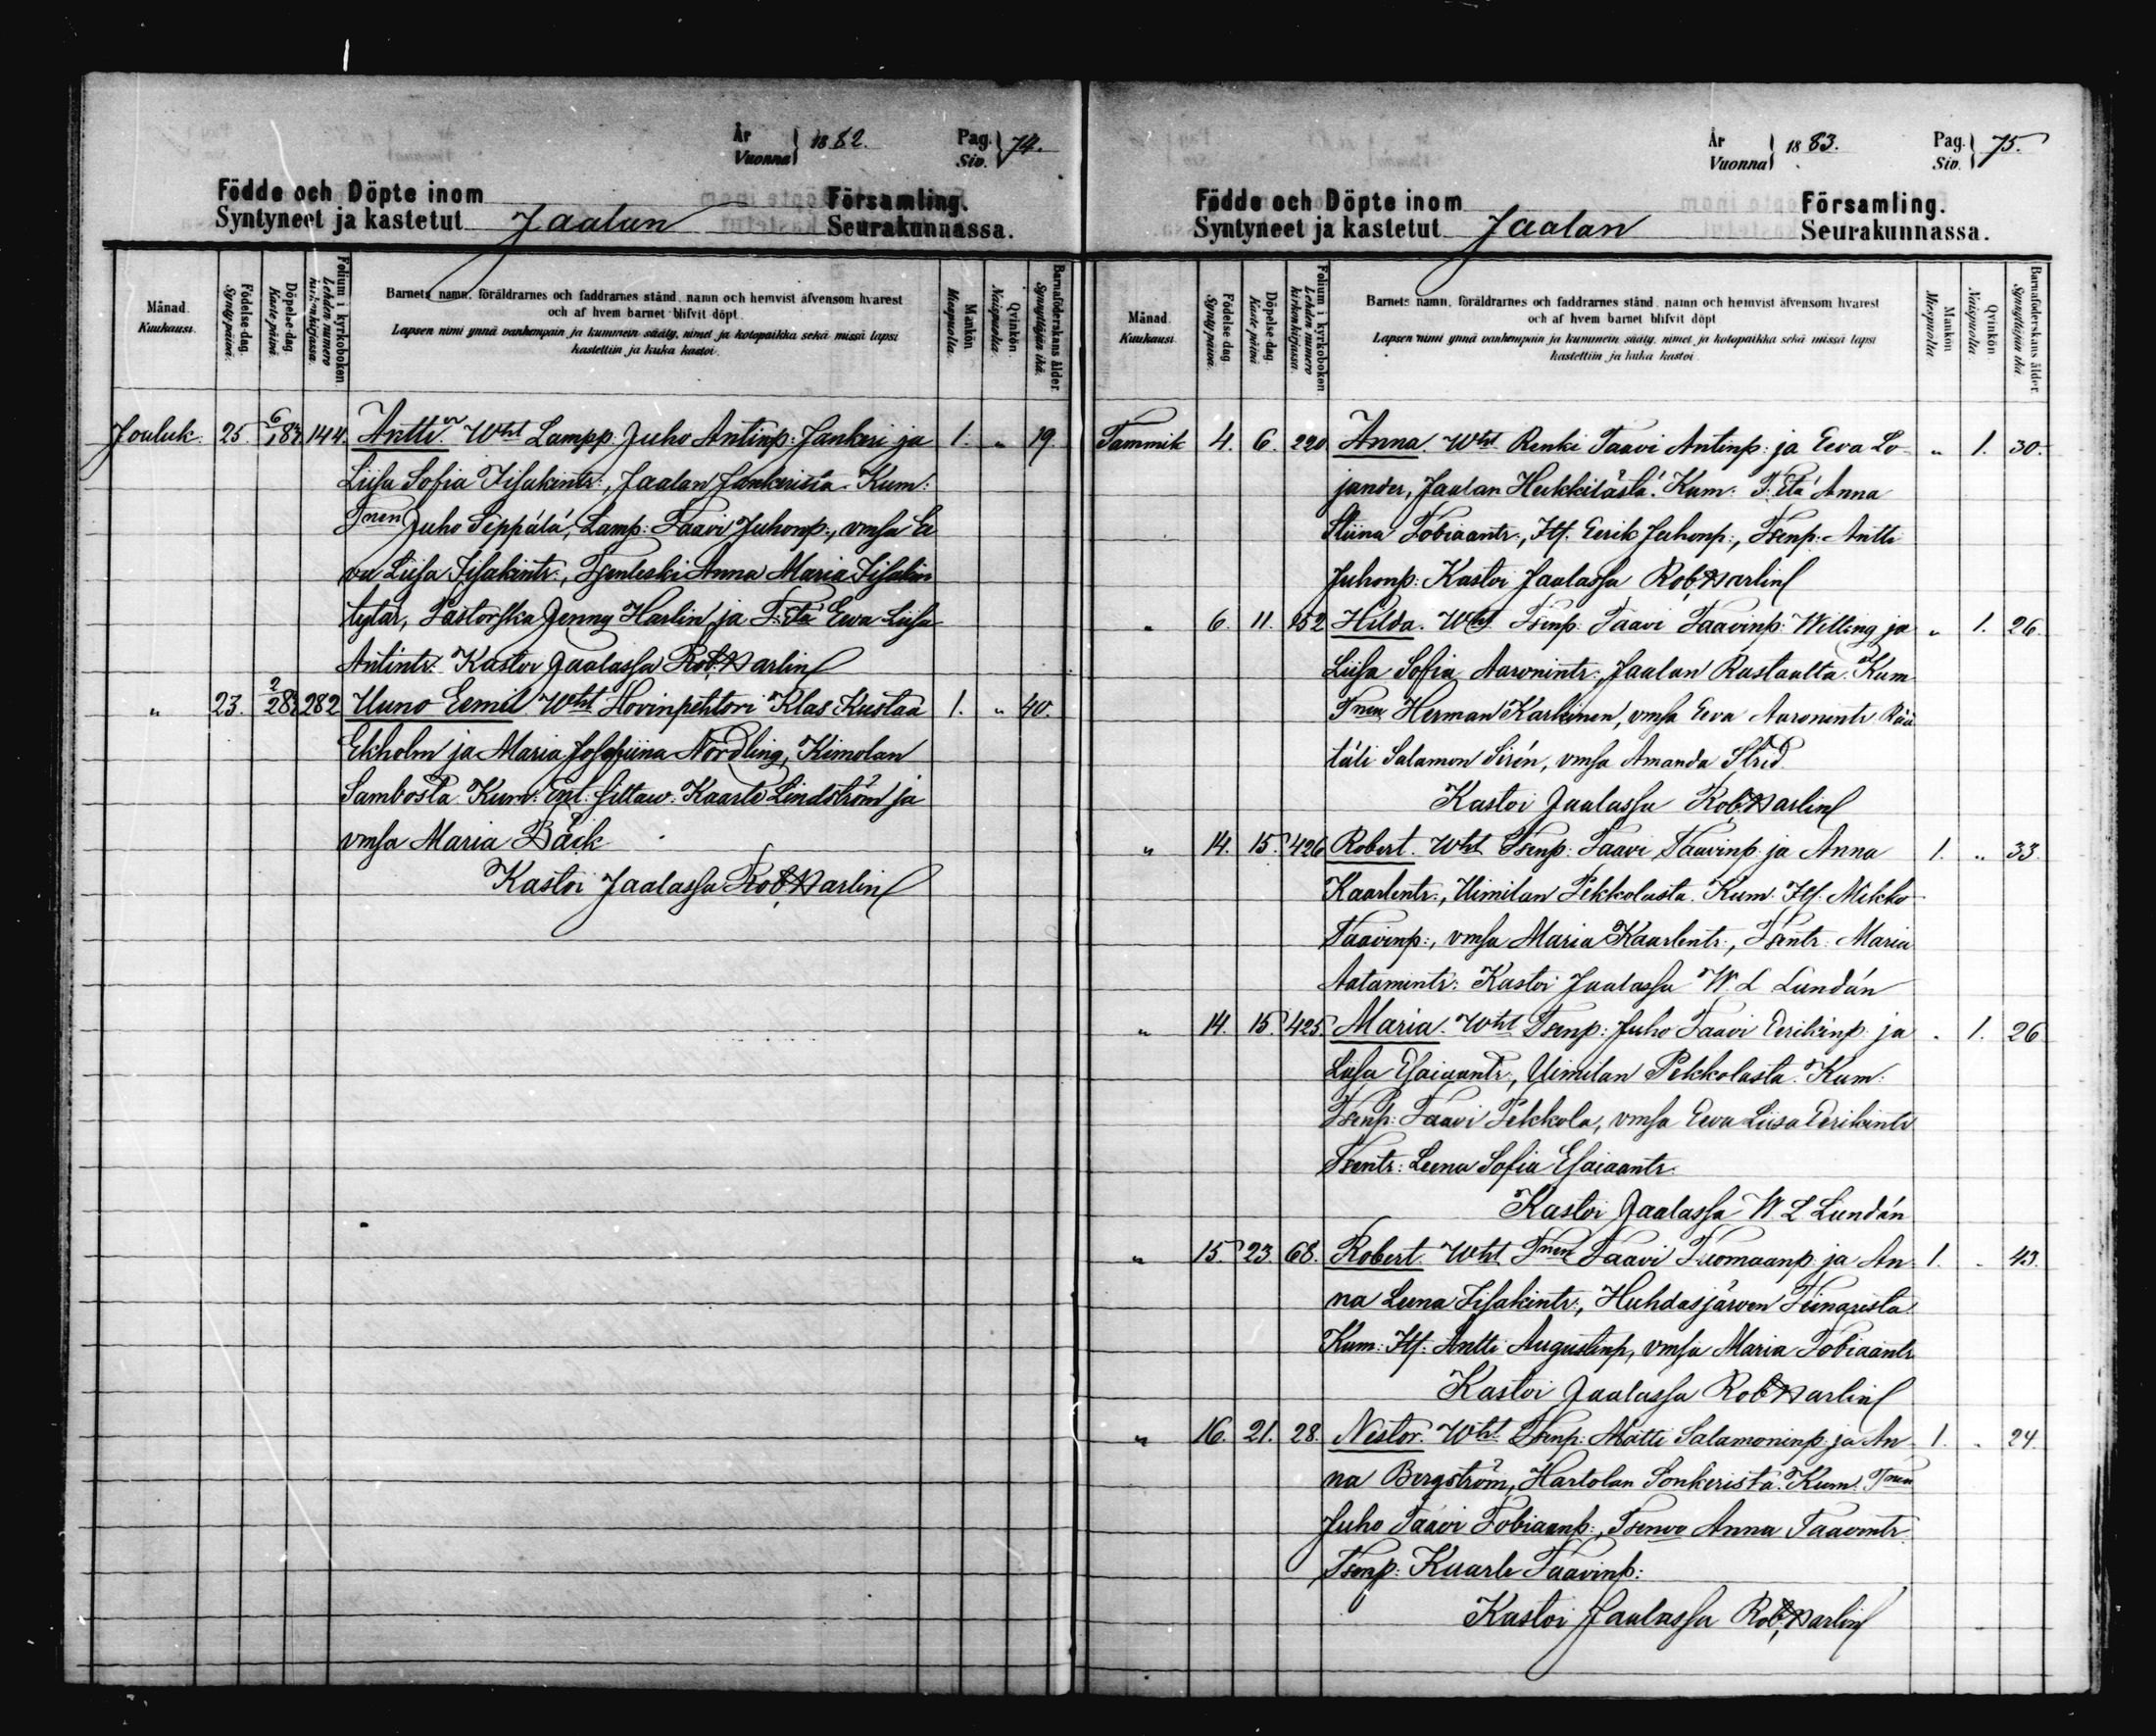 År
Vuonna } 1882. Pag. Siv. } 74.
Födde och Döpte inom Församling.
Syntyneet ja kastetut Jaalan Seurakunnassa.
Månad. Kuukausi. Födelse-dag. Synty päivä. Döpelse-dag. Kaste päivä. Folium i kyrkoboken. Lehden numero kirkonkirjassa. Barnets namn, föräldrarnes och faddrarnes stånd, namn och hemvist äfvensom hvarest och af hvem barnet blifvit döpt. Lapsen nimi ynnä vanhempain ja kummein sääty, nimet ja kotopaikka sekä missä lapsi kastettiin ja kuka kastoi. Mankön Miespuolta. Qvinkön Naispuolta. Barnaföderskans ålder. Synnyttäjän ikä.
Jouluk. 25. 6/1 83. 144. Antti. Wht Lampp. Juho Antinp: Jankeri ja 1. „ 19.
Liisa Sofia Iisakintr:, Jaalan Jankerista. Kum:
Tnen Juho Seppälä, Lamp: Taavi Juhonp:, vmsa Ee
va Liisa Iisakintr:, Tsenleski Anna Maria Iisakin
tytär, Pastorska Jenny Harlin ja T:stä Eeva Liisa
Antintr. Kastoi Jaalassa Rob. Harlin
„ 23. 2/2 83. 282 Uuno Eemil. Wht Hovinpehtori Klas Kustaa 1. „ 40.
Ekholm ja Maria Josephiina Nordling, Kimolan
Sambosta. Kum: Kaarle Lindström ja
vmsa Maria Bäck
Kastoi Jaalassa Rob. Harlin
År
Vuonna } 1883. Pag. Siv. } 75.
Födde och Döpte inom Församling.
Syntyneet ja kastetut Jaalan Seurakunnassa.
Månad. Kuukausi. Födelse-dag. Synty päivä. Döpelse-dag. Kaste päivä. Folium i kyrkoboken. Lehden numero kirkonkirjassa. Barnets namn, föräldrarnes och faddrarnes stånd, namn och hemvist äfvensom hvarest och af hvem barnet blifvit döpt. Lapsen nimi ynnä vanhempain ja kummein sääty, nimet ja kotopaikka sekä missä lapsi kastettiin ja kuka kastoi. Mankön Miespuolta. Qvinkön Naispuolta. Barnaföderskans ålder. Synnyttäjän ikä.
Tammik 4. 6. 220 Anna. Wht Renki Taavi Antinp: ja Eeva Lo „ 1. 30.
jander, Jaalan Heikkilästä. Kum: T:stä Anna
Stiina Tobiaantr:, Itf. Eerik Juhonp:, Tsenp: Antti
Juhonp: Kastoi Jaalassa Rob. Harlin
„ 6. 11. 152 Hilda. Wht Tsenp. Taavi Taavinp: Willing ja „ 1. 26.
Liisa Sofia Aaronintr: Jaalan Rastaalta. Kum
Tnen Herman Karhinen, vmsa Eeva Aaronintr Rää
täli Salamon Sirén, vmsa Amanda Strid.
Kastoi Jaalassa Rob. Harlin
„ 14. 15. 426 Robert. Wht Tsenp: Taavi Taavinp: ja Anna 1. „ 33.
Kaarlentr:, Uimilan Pekkolasta. Kum: Itf. Mikko
Taavinp:, vmsa Maria Kaarlentr:, Tsentr: Maria
Aatamintr: Kastoi Jaalassa W. L. Lundán
„ 14. 15. 425. Maria. Wht Tsenp: Juho Taavi Eerikinp: ja „ 1. 26
Liisa Esaiaantr:, Uimilan Pekkolasta. Kum:
Tsenp: Taavi Pekkola, vmsa Eeva Liisa Eerikintr
Tsentr: Leena Sofia Esaiaantr.
Kastoi Jaalassa W. L. Lundán
„ 15. 23. 68. Robert. Wht Tnen Taavi Tuomaanp: ja An 1. „ 43.
na Leena Iisakintr:, Huhdasjärven Heinarista
Kum: Itf: Antti Augustinp, vmsa Maria Tobiaantr
Kastoi Jaalassa Rob. Harlin
„ 16. 21. 28. Nestor. Wht Tsenp: Matti Salamoninp: ja An 1. „ 24.
na Bergström, Hartolan Sonkerista. Kum. Tnen
Juho Taavi Tobiaanp:, Tsenvo Anna Taavintr.
Tsenp: Kaarle Taavinp:
Kastoi Jaalassa Rob. Harlin